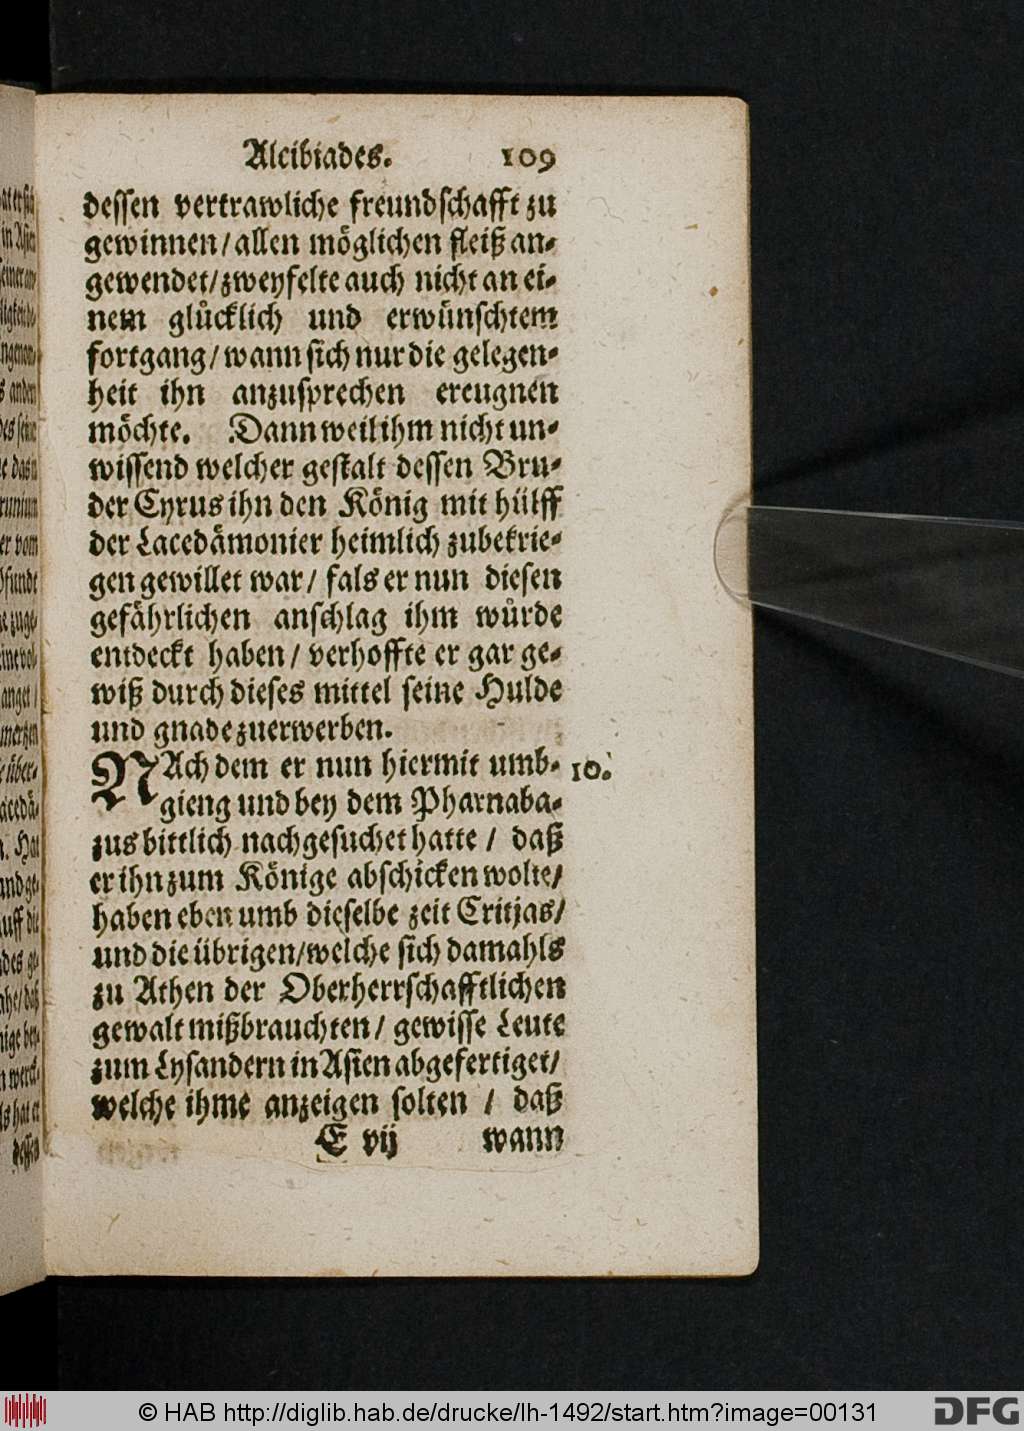 Alcibiades. 109
dessen vertrawliche freundschafft zu
gewinnen/allen möglichen fleiß an-
gewendet/zweyfelte auch nicht an ei-
nem glücklich und erwünschtem
fortgang/wann sich nur die gelegen-
heit ihn anzusprechen ereugnen
möchte. Dann weil ihm nicht un-
wissend welcher gestalt dessen Bru-
der Cyrus ihn den König mit hülff
der Lacedämonier heimlich zubekrie-
gen gewillet war/ fals er nun diesen
gefährlichen anschlag ihm würde
entdeckt haben/ verhoffte er gar ge-
wiß durch dieses mittel seine Hulde
und gnade zuerwerben.
NAch dem er nun hiermit umb- 10.
gieng und bey dem Pharnaba-
zus bittlich nachgesuchet hatte / daß
er ihn zum Könige abschicken wolte/
haben eben umb dieselbe zeit Critjas/
und die übrigen/welche sich damahls
zu Athen der Oberherrschafftlichen
gewalt mißbrauchten/ gewisse Leute
zum Lysandern in Asien abgefertiget/
welche ihme anzeigen solten / daß
E vij wann
© HAB http://diglib.hab.de/drucke/lh-1492/start.htm?image=00131
DFG